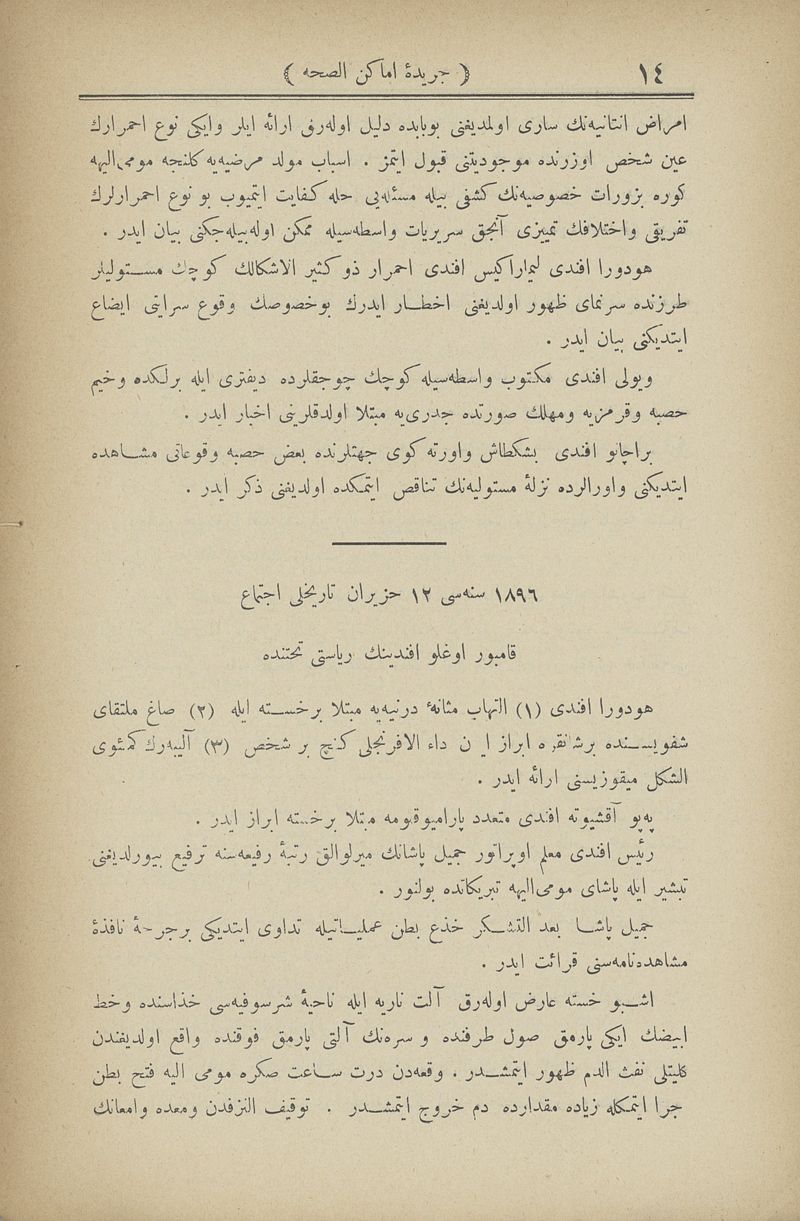 ١٤ ﴿ جريدهٔ اماكن الصحه ﴾
امراض انتانيه‌نك سارى اولمديغنى بوبابده دليل اوله‌رق ارائه ايلر وايكى نوع احمرارك
عين شخص اوزرنده موجوديتنى قبول ايتمز . اسباب مولد مرضيه‌يه كلنجه مومى‌اليه
كوره بزورات خصوصيه‌نك كشفى بيله مسئله‌يى حله كفايت ايتميوب بو نوع احمرارلرك
تفريقى واختلافك تمييزى آنجق سريريات واسطه‌سيله ممكن اوله‌بيله‌جكنى بيان ايدر .
هودورا افندى ليماراكيس افندى احمرار ذو كثير الاشكالك كوچك مستوليلر
طرزنده سرنماى ظهور اولديغنى اخطار ايدرك بوخصوصك وقوع سرايتى ايضاع
ايتديكنى بيان ايدر .
ويولى افندى مكتوب واسطه‌سيله كوچك چوجقلرده ديفترى ايله برلكده وخيم
حصبه وقرمزيه ومهلك صورتده جدرى‌يه مبتلا اولدقلرينى اخبار ايدر .
براچانو افندى بشكطاش واورته كوى جهتلرنده بعض حصبه وقوعاتى مشاهده
ايتديكنى واورالرده نزلهٔ مستوليه‌نك تناقص ايتمكده اولديغنى ذكر ايدر .
١٨٩٦ سنه‌سى ١٢ حزيران تاريخلى اجتماع
قامبور اوغلو افندينك رياستى تحتنده
هودورا افندى (١) التهاب مثانهٔ درنيه‌يه مبتلا برخسته ايله (٢) صاغ ملتقاى
شفويسنده برشانقره ابراز ايدن داء الافرنجلى كنج بر شخص (٣) آليبه‌رك كمئوى
الشكل ميقوزيسنى ارائه ايدر .
په‌پو آقشيوته افندى متعدد پاراميوقلومه مبتلا برخسته ابراز ايدر .
رئيس افندى معلم اوپراتور جميل پاشانك ميرلوالق رتبهٔ رفيعه‌سنه ترفيع بيورلديغنى
تبشير ايله پاشاى مومى‌اليهه تبريكاتده بولنور .
جميل پاشا بعد التشكر خذع بطن عملياتيله تداوى ايتديكى برجرحهٔ نافذهٔ
مشاهده‌نامه‌سنى قرائت ايدر .
اشبو خسته عارض اوله‌رق آلت ناريه ايله ناحيهٔ شرسوفيه‌سى حذاسنده وخط
ابيضك ايكى پارمق صول طرفنده و سره‌نك آلتى پارمق فوقنده واقع اولديغندن
كليتلى نفث الدم ظهور ايتمشدر . وقعه‌دن درت ساعت صكره مومى اليه فتح بطن
جرا ايتمكله زياده مقدارده دم خروج ايتمشدر . توقيف النزفدن ومعده وامعانك